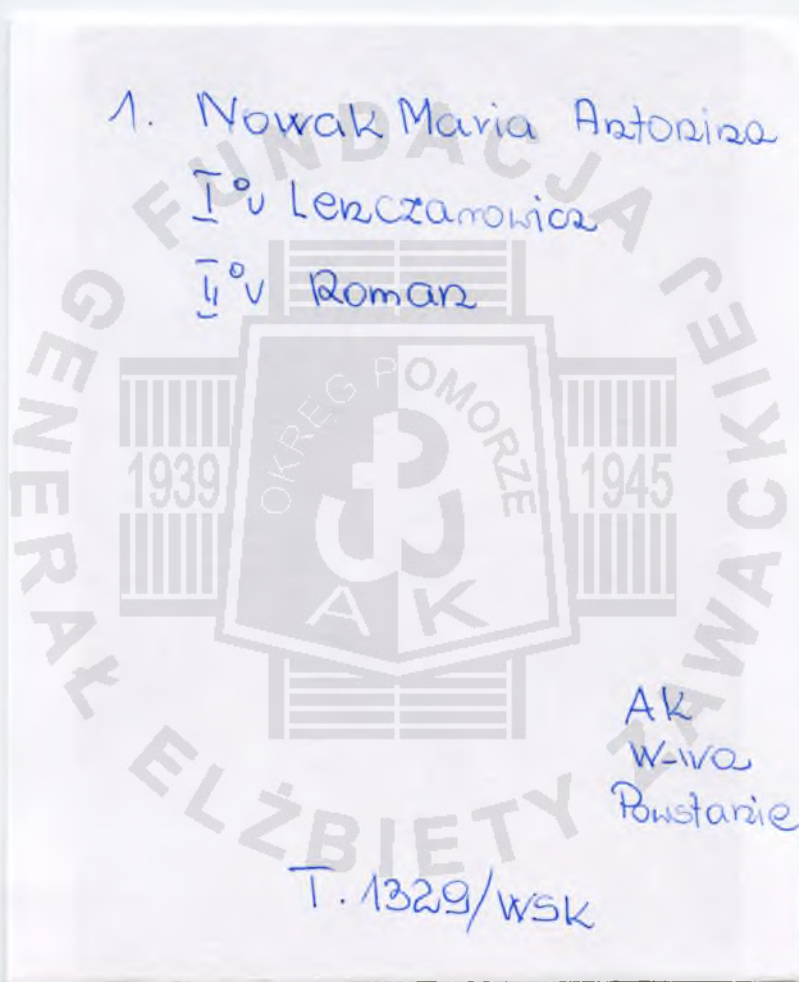 1. Nowak Maria Antonina
I°v Lenczarowicz
II°v Roman
FUNDACJA GENERAŁ ELŻBIETY ZAWACKIEJ
OKRĘG POMORZE
1939 1945
AK
AK
W-wa
Powstanie
T. 1329/WSK